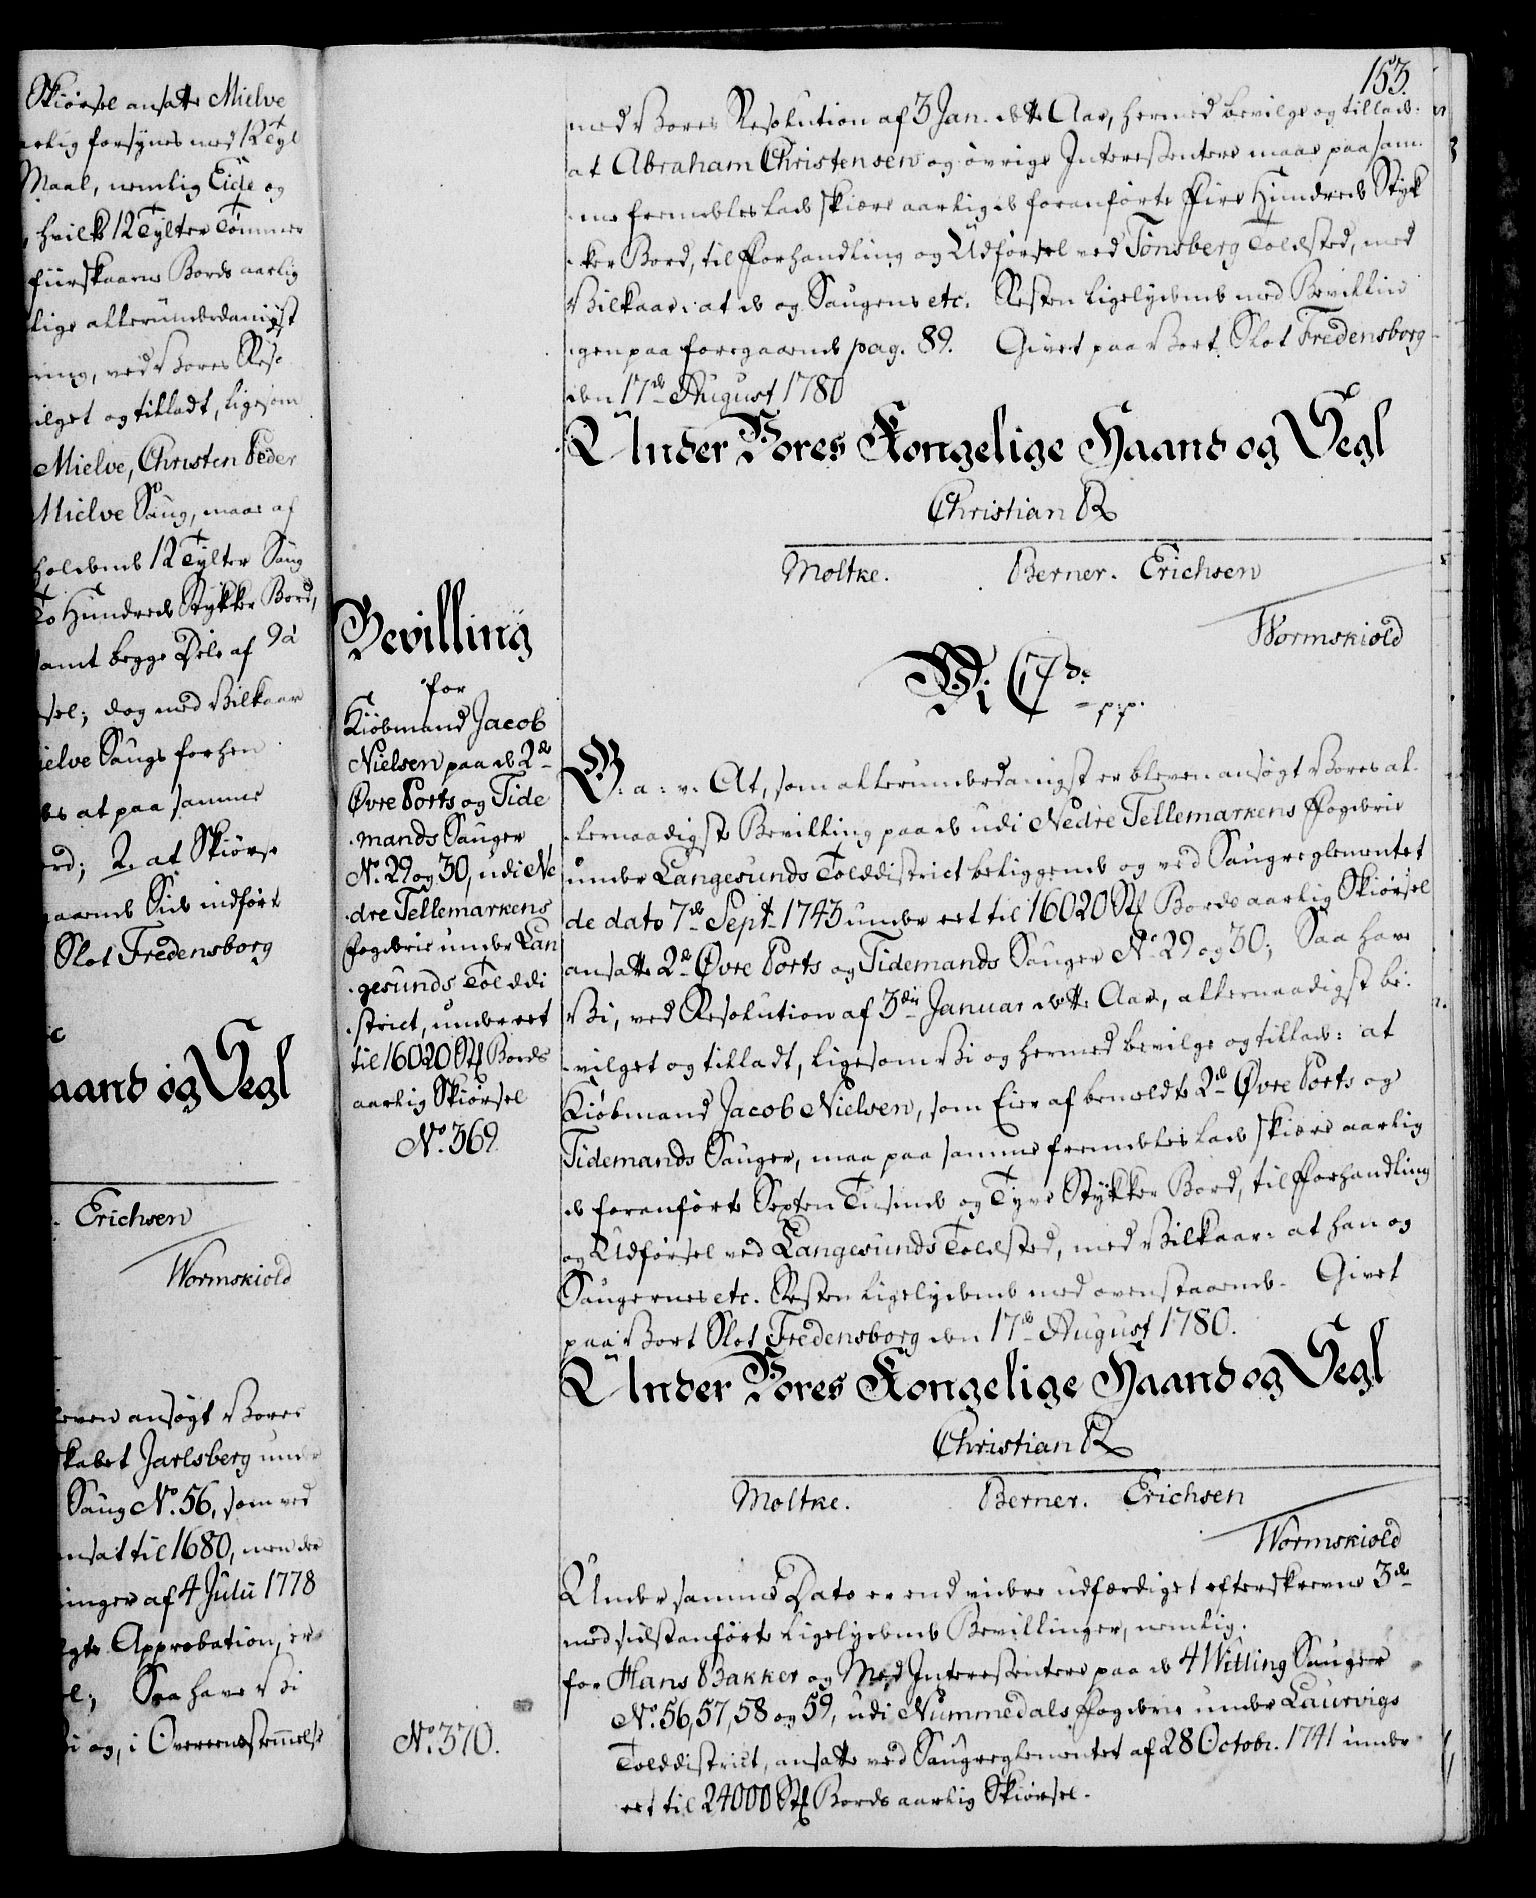 Skiörsel ansatte Mielve
aarlig forsynes med 12 Tyl
Maal, nemlig Eide og
hvilke 12 Tylter Tømmer
fiirskaarne Bords aarlig
lige allerunderdanigst
ring, ved Vores Reso
vilget og tilladt, ligesom
Mielve, Christen Peder
Mielve Saug, maae af
holdende 12 Tylter Saug
To Hundrede Stykker Bord,
samt begge Dele af 9 à
sel; dog med Vilkaar
ielve Saugs forhen
des at paa samme
rd; 2. at Skiörse
gaaende Side indført
Slot Fredensborg
aand og Segl
Erichsen
Wormskiold
leven ansøgt Vores
skabet Jarlsberg unde
Saug No. 56, som ved
ansat til 1680, men der
inger af 4 Julii 1778
gte Approbation, er
el; Saa have Vi
Vi og, i Overeensstemmelse
153.
med Vores Resolution af 3 Jan. dette Aar, hermed bevilge og tillade:
at Abraham Christensen og øvrige Interessentere maae paa sam-
me fremdeles lade skiære aarlig de foranførte Fire Hundrede Styk
ker Bord, til Forhandling og Udførsel ved Tönsberg Toldsted, med
Vilkaar: at de og Saugens etc. Resten ligelydende med Bevillin
gen paa foregaaende pag. 89. Givet paa Vort Slot Fredensborg
den 17de August 1780
Under Vores Kongelige Haand og Segl
Christian R
Moltke. Berner. Erichsen
Wormskiold
Bevilling
for
Kiöbmand Jacob
Nielsen paa de 2de
Øvre Ports og Tide
mands Sauger
No. 29 og 30, udi Ne
dre Tellemarkens
Fogderie under Lan
gesunds Tolddi
strict, under eet
til 16020 Stk Bords
aarlig Skiörsel
No. 369
Vi C 7de
p.p.
G: a: v: At, som allerunderdanigst er bleven ansøgt Vores al-
lernaadigste Bevilling paa de udi Nedre Tellemarkens Fogderie
under Langesunds Tolddistrict beliggende og ved Saugreglementet
de dato 7de Sept. 1743 under eet til 16020 Stk Bords aarlig Skiörsel
ansatte 2de Øvre Ports og Tidemands Sauger No. 29 og 30; Saa have
Vi, ved Resolution af 3die Januar dette Aar, allernaadigst be-
vilget og tilladt, ligesom Vi og hermed bevilge og tillade: at
Kiöbmand Jacob Nielsen, som Eier af bemeldte 2de Øvre Ports og
Tidemands Sauger, maa paa samme fremdeles lade skiære aarlig
de foranførte Sexten Tusinde og Tyve Stykker Bord, til Forhandling
og Udførsel ved Langesunds Toldsted, med Vilkaar: at han og
Saugernes etc. Resten ligelydende med ovenstaaende. Givet
paa Vort Slot Fredensborg den 17de August 1780.
Under Vores Kongelige Haand og Segl
Christian R
Moltke. Berner. Erichsen
Wormskiold
Under samme Dato er end videre udfærdiget efterskrevne 3de
med sidstanførte ligelydende Bevillinger, nemlig.
No. 370.
for Hans Bakker og Med Interessentere paa de 4 Witting Sauger
No. 56, 57, 58 og 59, udi Nummedals Fogderie under Laurvigs
Tolddistrict, ansatte ved Saugreglementet af 28 Octobr. 1741 under
eet til 24000 Stk Bords aarlig Skiörsel.